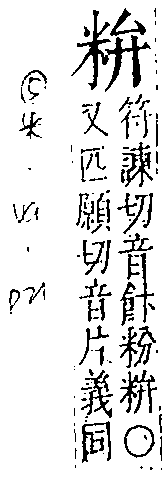 符諫切音飰粉○
又匹願切音片義同
⑤米·VI·P21